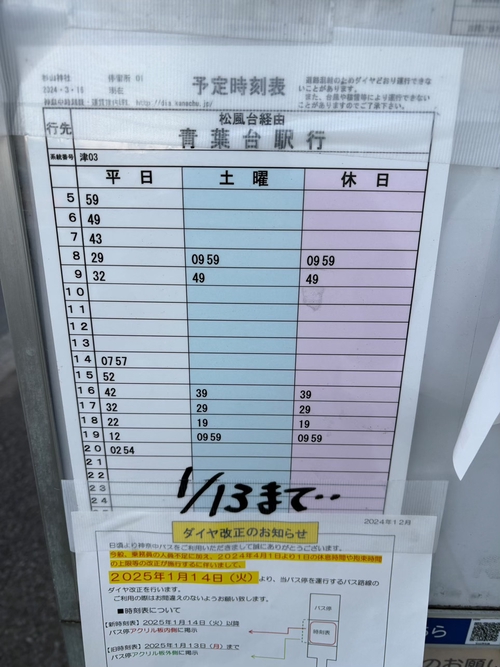 杉山神社 停留所 01
2024-3-16 現在
予定時刻表
道路混雑の上のダイヤどおり運行できな
いことがあります。
また、台風や積雪等により運行できない
ことがありますのでご了承下さい。
行先
松風台経由
青葉台駅行
系統番号 津03
平日 土曜 休日
5 59
6 49
7 43
8 29 09 59 09 59
9 32 49 49
10
11
12
13
14 07 57
15 52
16 42 39 39
17 32 29 29
18 22 19 19
19 12 09 59 09 59
20 02 54
21
22
23
24
1/13まで..
2024年12月
ダイヤ改正のお知らせ
日頃より神奈中バスをご利用いただきまして誠にありがとうございます。
今般、乗務員の人員不足に加え、2024年4月1日より1日の休息時間や拘束時間
の上限等の改正が施行するに伴いまして、
2025年1月14日（火）より、当バス停を運行するバス路線の
ダイヤ改正を行います。
ご利用の際はお間違えのないようお願い致します。
■時刻表について
【新時刻表】2025年1月14日（火）以降
バス停アクリル板内側に掲示
【旧時刻表】2025年1月13日（月）まで
バス停アクリル板外側に掲示
バス停
時刻表
ちら
のお願